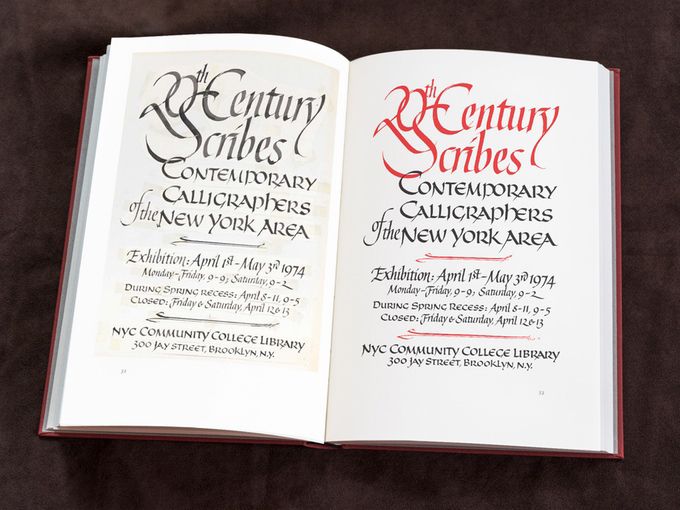 20th Century
Scribes
Contemporary
Calligraphers
of the New York Area
Exhibition: April 1st - May 3rd 1974
Monday-Friday, 9-9; Saturday, 9-2
During Spring Recess: April 8-11, 9-5
Closed: Friday & Saturday, April 12 & 13
NYC Community College Library
300 Jay Street, Brooklyn, N.Y.
20th Century
Scribes
Contemporary
Calligraphers
of the New York Area
Exhibition: April 1st - May 3rd 1974
Monday-Friday, 9-9; Saturday, 9-2
During Spring Recess: April 8-11, 9-5
Closed: Friday & Saturday, April 12 & 13
NYC Community College Library
300 Jay Street, Brooklyn, N.Y.